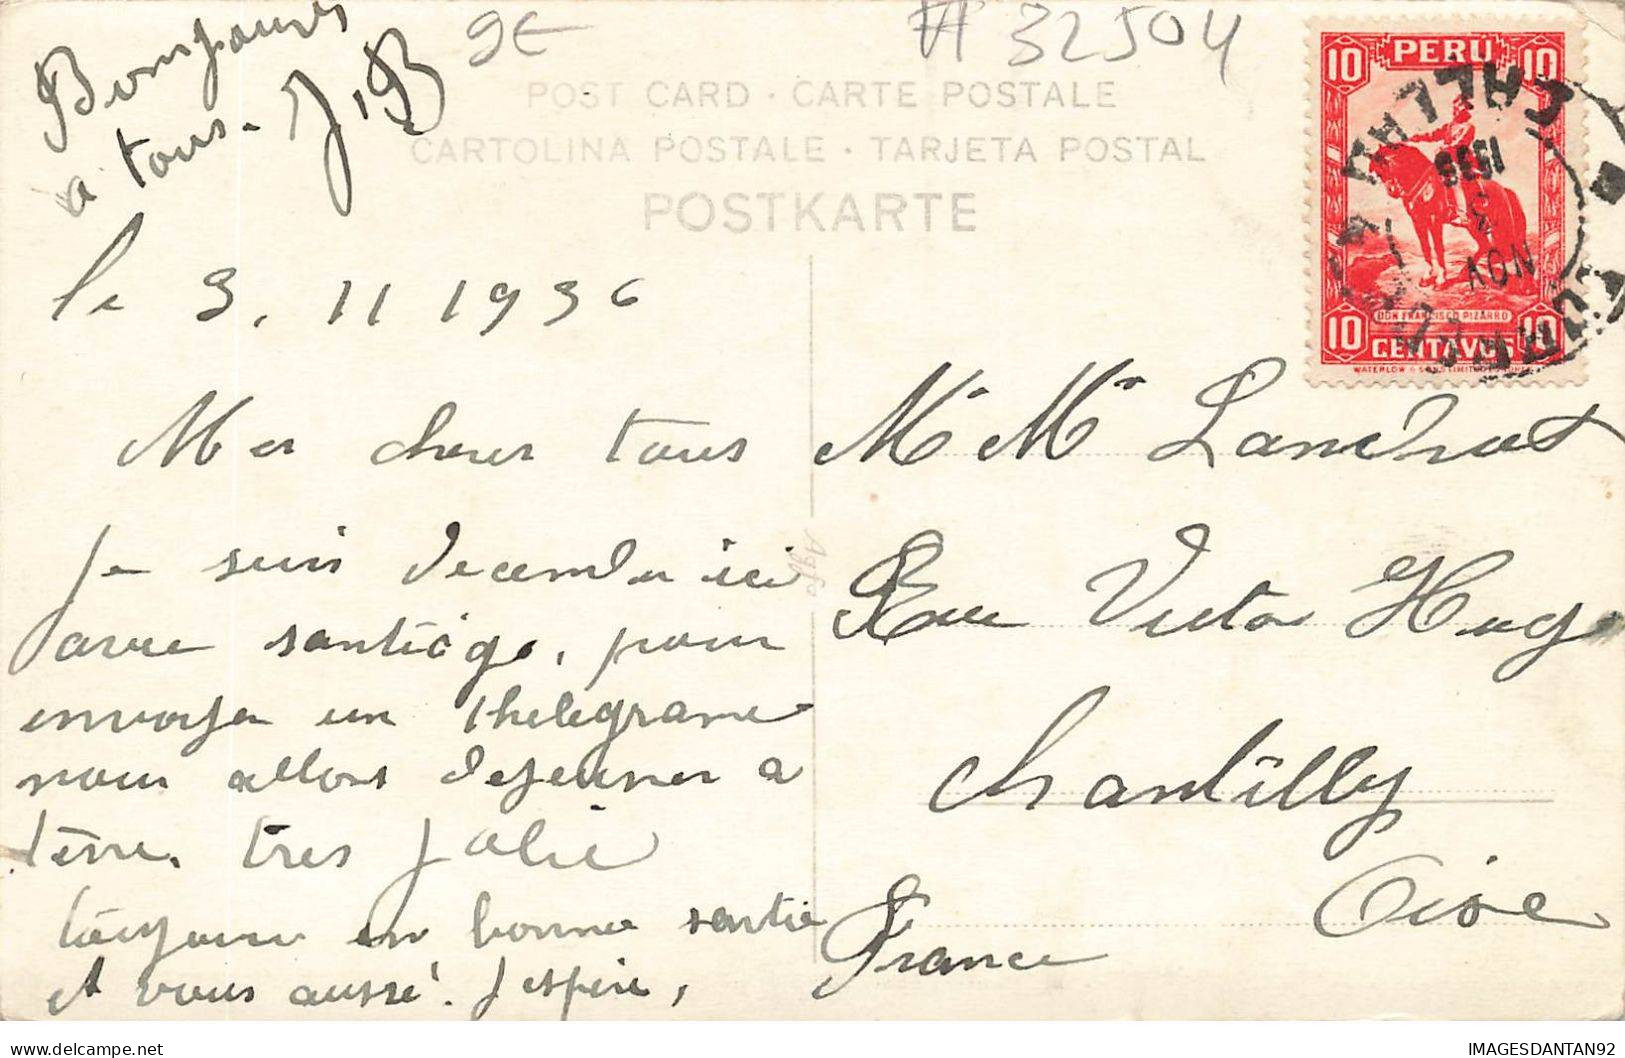 Bonjours
a tous. J.B
9E
VP 32504
POST CARD · CARTE POSTALE
CARTOLINA POSTALE · TARJETA POSTAL
POSTKARTE
10 PERÚ 10
CALLAO
NOV
DON FRANCISCO PIZARRO
10 CENTAVOS 10
WATERLOW & SONS LIMITED, LONDRES.
le 3. 11 1936
Mes chers tous
je suis decendu ici
avec santiégo, pour
envoyer un thelegrame
nous allons dejeuner a
terre. tres jolie
toujours en bonne santie
et vous aussé. J'espère,
Agfa
M. Mr Lanchat
Rue Victor Hugo
Chantilly
Oise
France
IMAGESDANTAN92